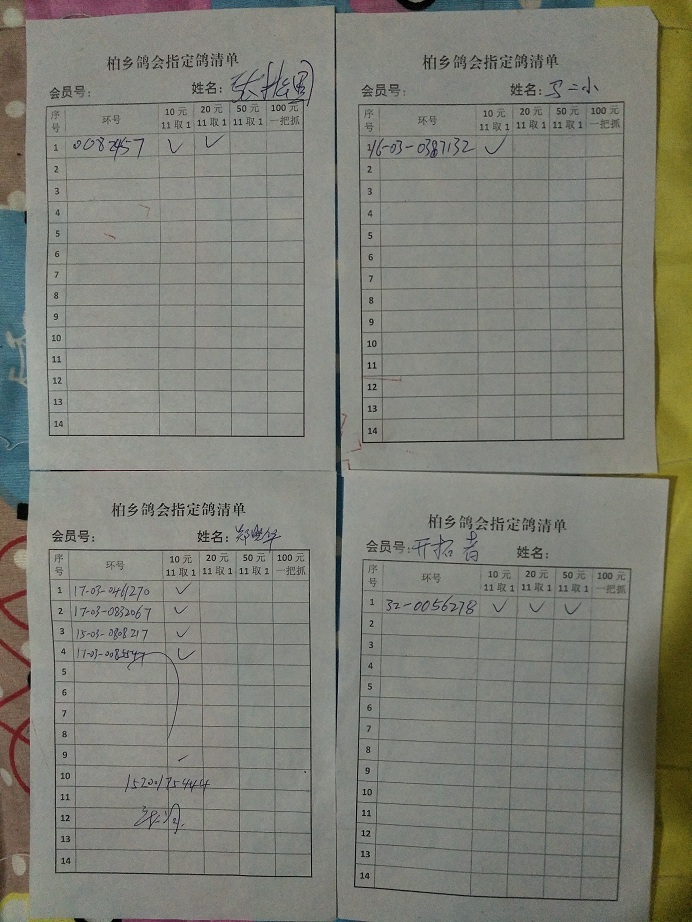 柏乡鸽会指定鸽清单
会员号: 姓名:
序号 环号 10 元 11 取 1 20 元 11 取 1 50 元 11 取 1 100 元 一把抓
1 0082457 ✓ ✓
2
3
4
5
6
7
8
9
10
11
12
13
14
柏乡鸽会指定鸽清单
会员号: 姓名: 马二小
序号 环号 10 元 11 取 1 20 元 11 取 1 50 元 11 取 1 100 元 一把抓
16-03-0387132 ✓
2
3
4
5
6
7
8
9
10
11
12
13
14
柏乡鸽会指定鸽清单
会员号: 姓名:
序号 环号 10 元 11 取 1 20 元 11 取 1 50 元 11 取 1 100 元 一把抓
1 17-03-0461270 ✓
2 17-03-0832067 ✓
3 15-03-0808217 ✓
4 ✓
5
6
7
8
9
10 15200175444
11
12
13
14
柏乡鸽会指定鸽清单
会员号: 开拓者 姓名:
序号 环号 10 元 11 取 1 20 元 11 取 1 50 元 11 取 1 100 元 一把抓
1 32-0056278 ✓ ✓ ✓
2
3
4
5
6
7
8
9
10
11
12
13
14